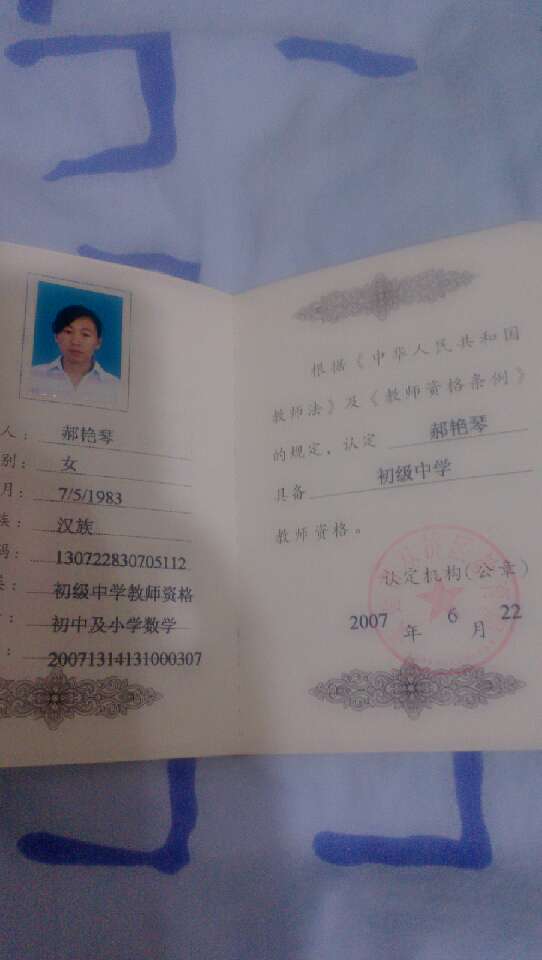 人：郝艳琴
别：女
月：7/5/1983
族：汉族
码：130722830705112
初级中学教师资格
初中及小学数学
20071314131000307
根据《中华人民共和国
教师法》及《教师资格条例》
的规定，认定 郝艳琴
具备 初级中学
教师资格。
认定机构(公章)
2007 年 6 月 22